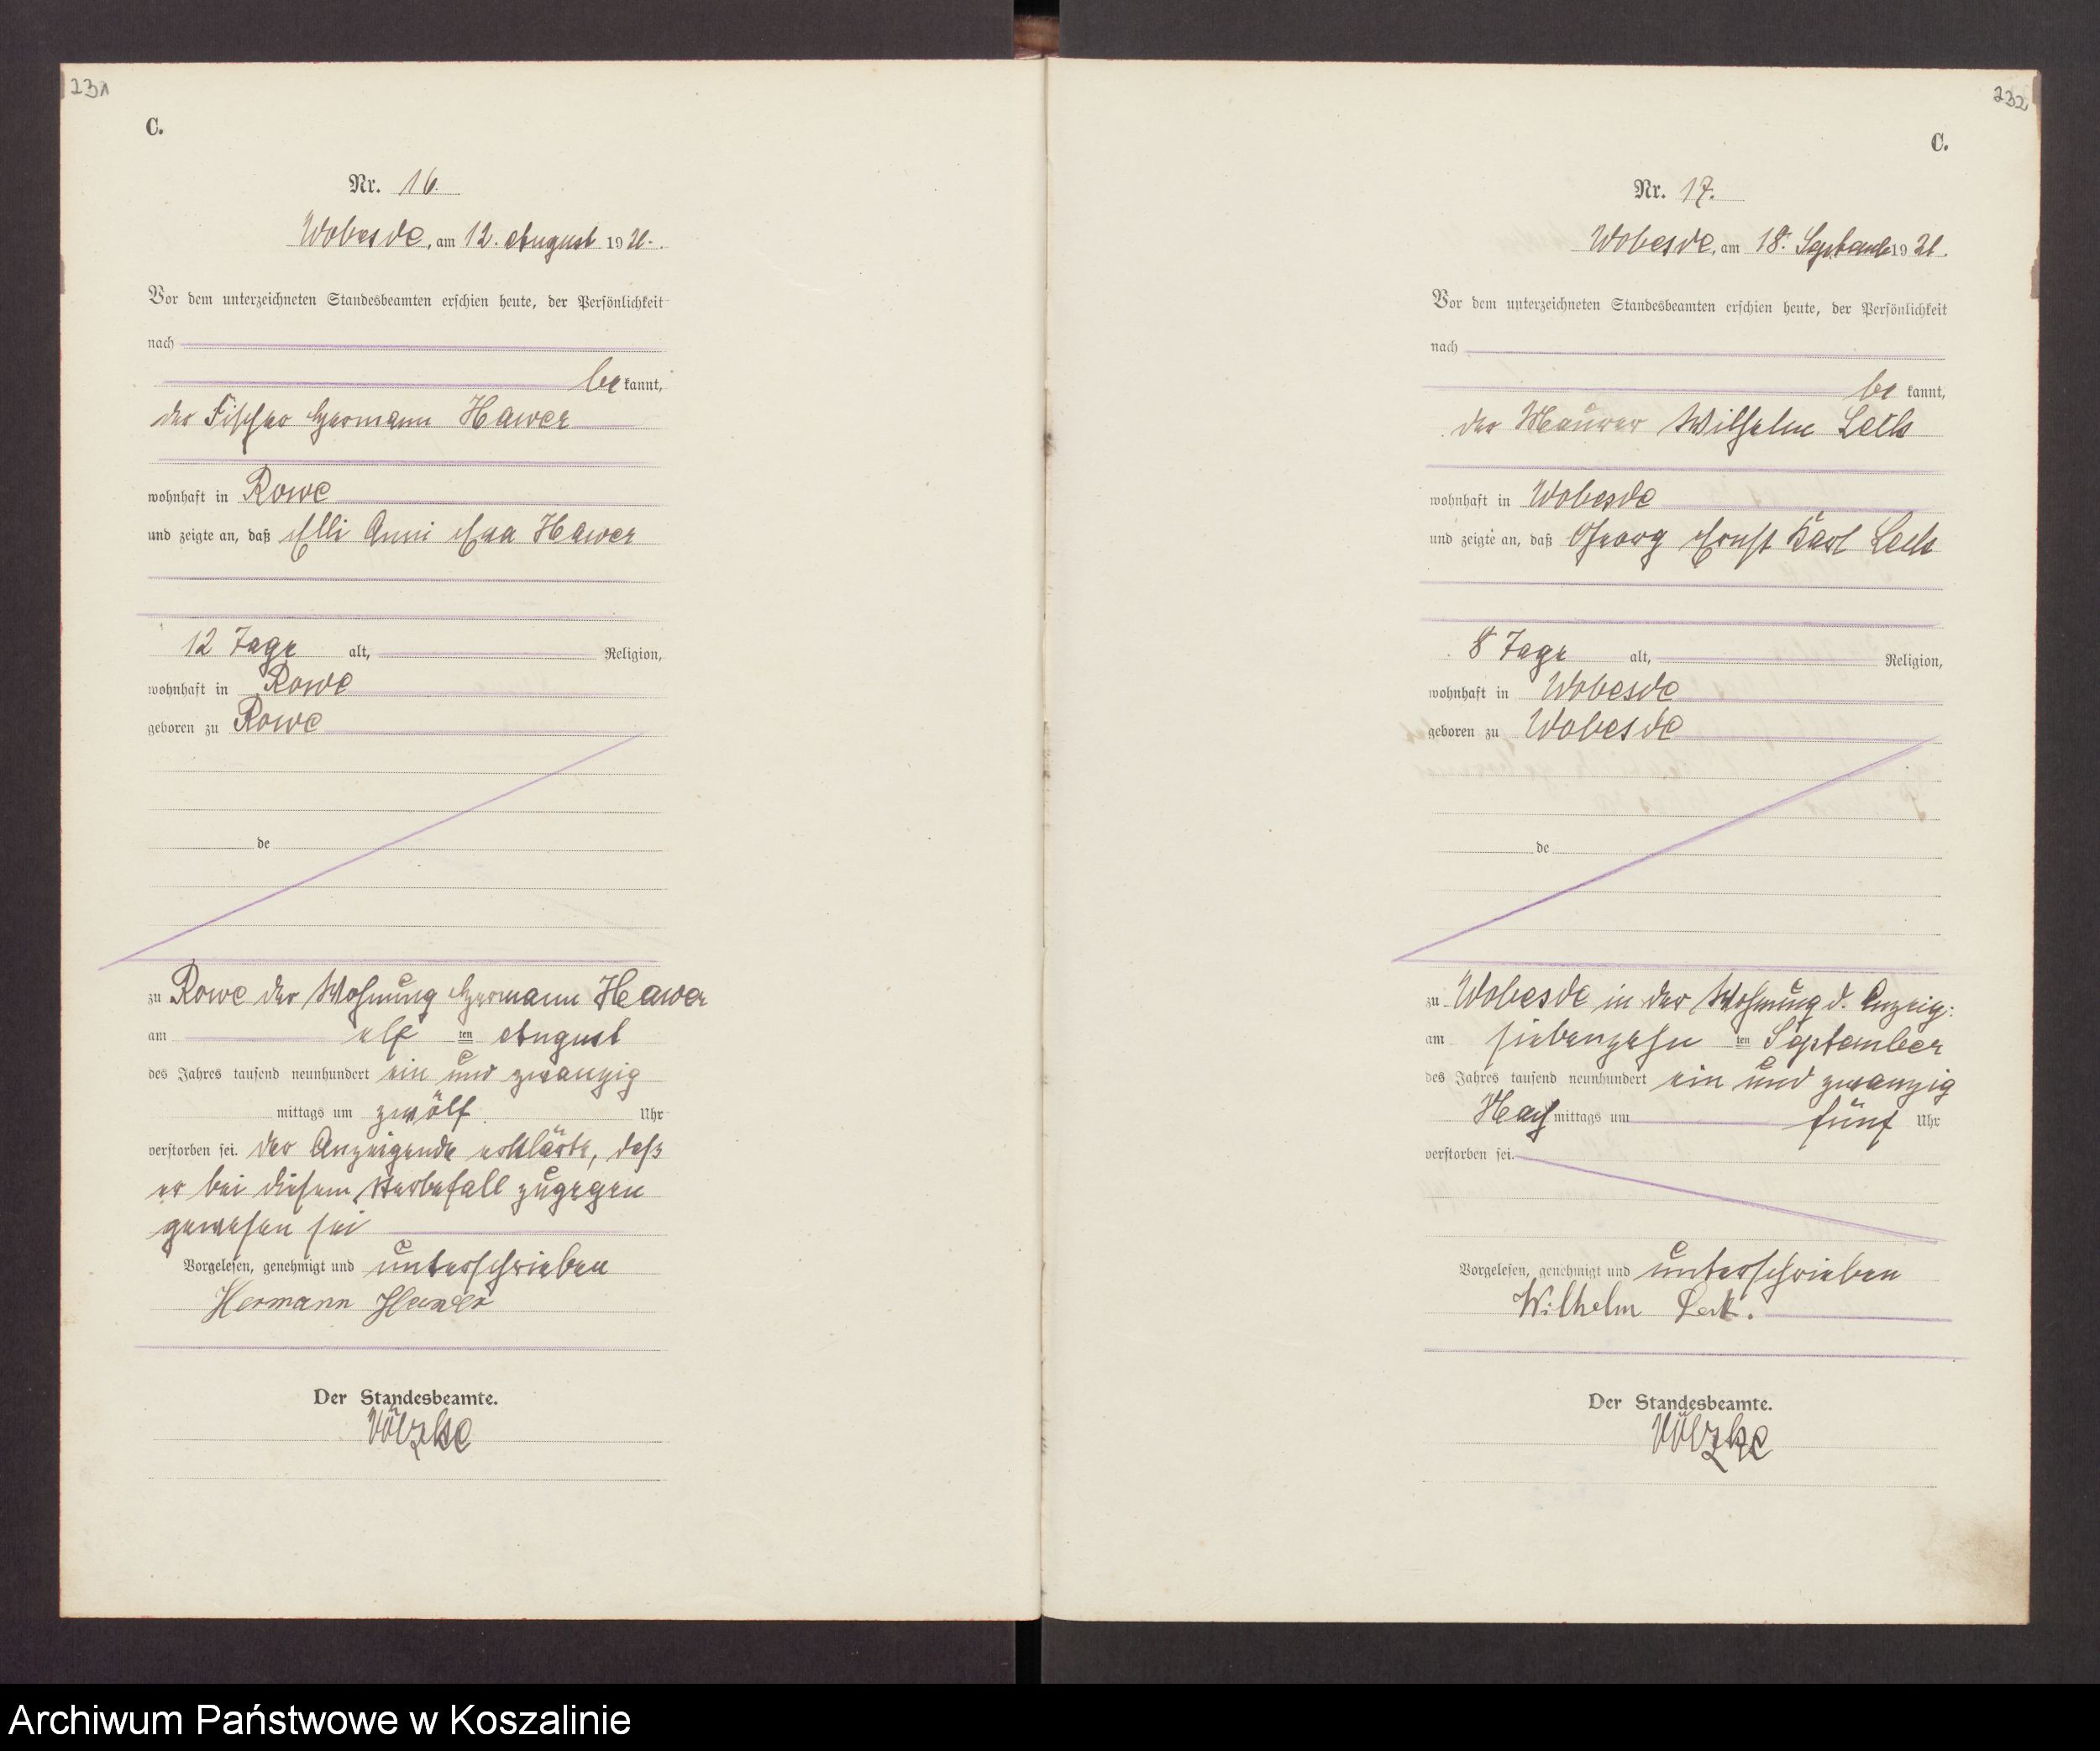 231
C.
Nr. 16.
Wobesde, am 12. August 1921.
Vor dem unterzeichneten Standesbeamten erschien heute, der Persönlichkeit
nach
be kannt,
der Fischer Hermann Hawer
wohnhaft in Rowe
und zeigte an, daß Elli Anni Eva Hawer
12 Tage alt, Religion,
wohnhaft in Rowe
geboren zu Rowe
de
zu Rowe der Wohnung Hermann Hawer
am elf ten August
des Jahres tausend neunhundert ein und zwanzig
mittags um zwölf Uhr
verstorben sei. Der Anzeigende erklärte, daß
er bei diesem Sterbefall zugegen
gewesen sei
Vorgelesen, genehmigt und unterschrieben
Hermann Hawer
Der Standesbeamte.
Völzke
232
C.
Nr. 17.
Wobesde, am 18. Septemb 1921.
Vor dem unterzeichneten Standesbeamten erschien heute, der Persönlichkeit
nach
be kannt,
der Maurer Wilhelm
wohnhaft in Wobesde
und zeigte an, daß Georg Ernst Karl
8 Tage alt, Religion,
wohnhaft in Wobesde
geboren zu Wobesde
de
zu Wobesde in der Wohnung d. Anzeig:
am siebenzehn ten September
des Jahres tausend neunhundert ein und zwanzig
Nach mittags um fünf Uhr
verstorben sei.
Vorgelesen, genehmigt und unterschrieben
Wilhelm
Der Standesbeamte.
Völzke
Archiwum Państwowe w Koszalinie